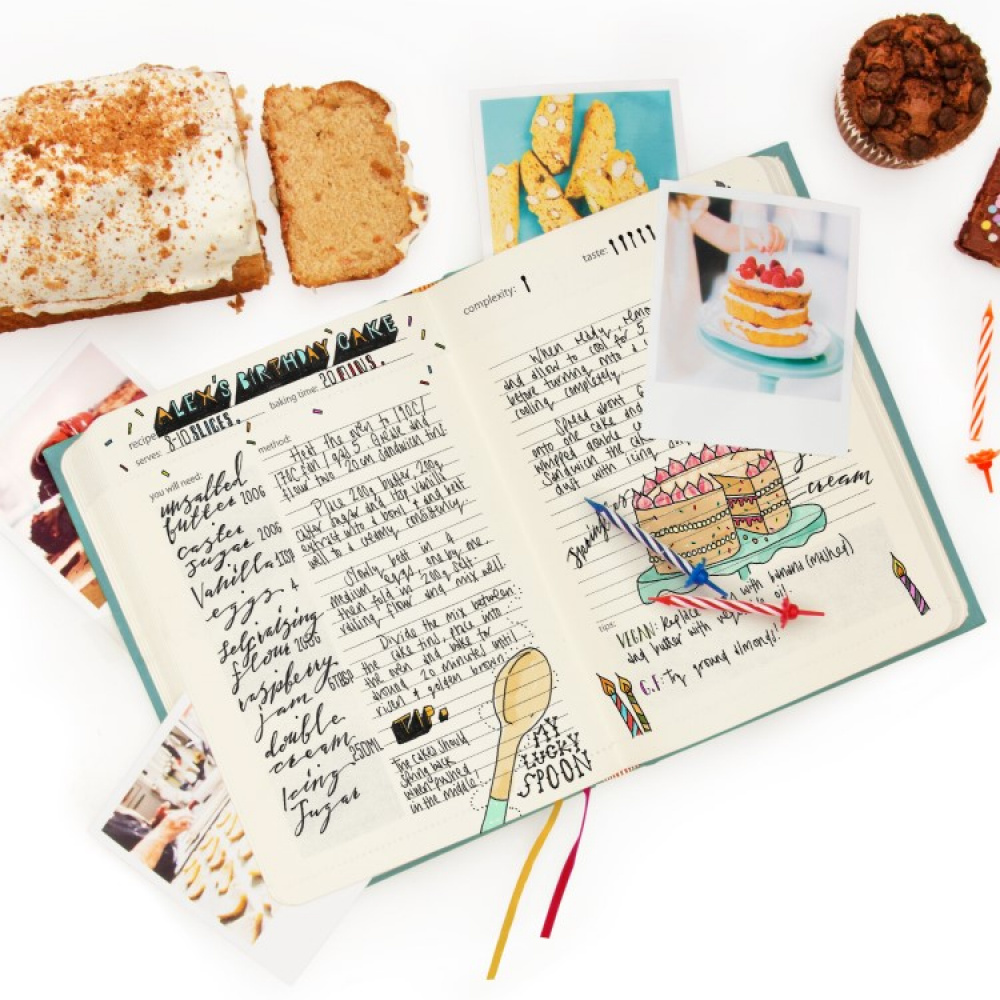 ALEX'S BIRTHDAY CAKE
recipe
serves: 8-10 SLICES.
baking time: 20 MINS.
you will need:
unsalted
butter 200G
caster
sugar 200G
Vanilla 1TSP
eggs 4
self raising
flour 200G
raspberry
jam 6TBSP
double
cream 250ML
Icing
Sugar
method:
Heat the oven to 190C/
170C fan/ gas 5. Grease and
flour two 20cm sandwich tins.
Place 200g butter, 200g
caster sugar and 1tsp vanilla
extract into a bowl and beat
well to a creamy consistency.
Slowly beat in 4
medium eggs, one by one
then fold in 200g self-
raising flour and mix well.
Divide the mix between
the cake tins, place into
the oven and bake for
around 20 minutes until
risen & golden brown.
TIP.
The cakes should
spring back
when pushed
in the middle!
MY
LUCKY
SPOON
complexity:
taste:
When ready, remo
and allow to cool for 5
before turning onto a
cooling completely.
Spread about 6
onto one cake and
whipped double c
Sandwich the c
dust with icing
cream
tips:
VEGAN: Replace with banana (mashed)
and butter with vegetable oil.
G.F: Try ground almonds!